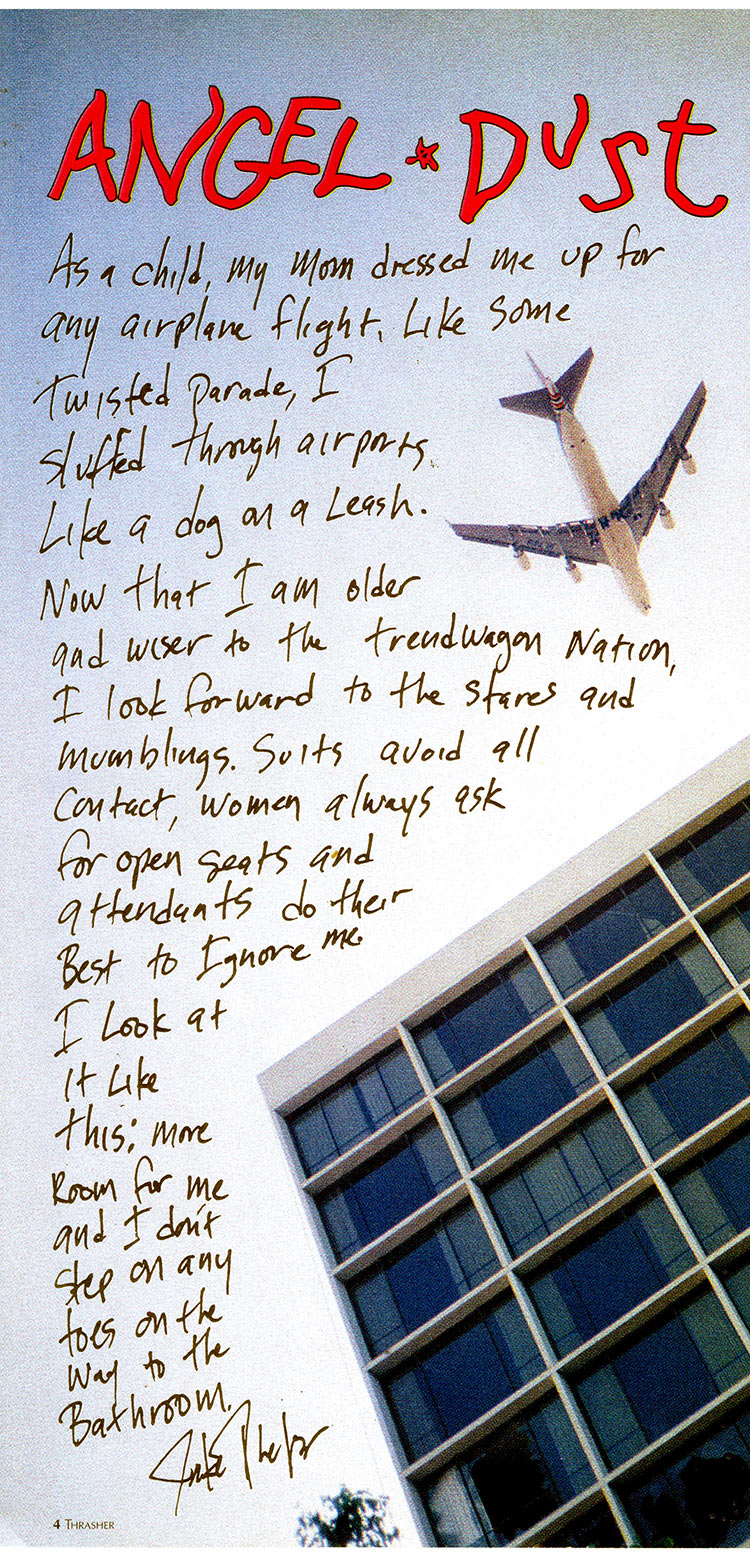 ANGEL * DUST
As a child, my mom dressed me up for
any airplane flight. Like some
twisted parade, I
sluffed through airports
Like a dog on a Leash.
Now that I am older
and wiser to the trendwagon Nation,
I look forward to the stares and
mumblings. Suits avoid all
Contact, women always ask
for open seats and
attendants do their
Best to Ignore me.
I Look at
It Like
this: more
Room for me
and I don't
step on any
toes on the
way to the
Bathroom.
Jake Phelps
4 THRASHER